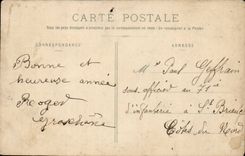 CARTE POSTALE
CORRESPONDANCE
ADRESSE
Bonne et
heureuse année
Roger
Mr Paul Geffrain
sous officier au 71e
d'infanterie à St Brieuc
Côtes du Nord